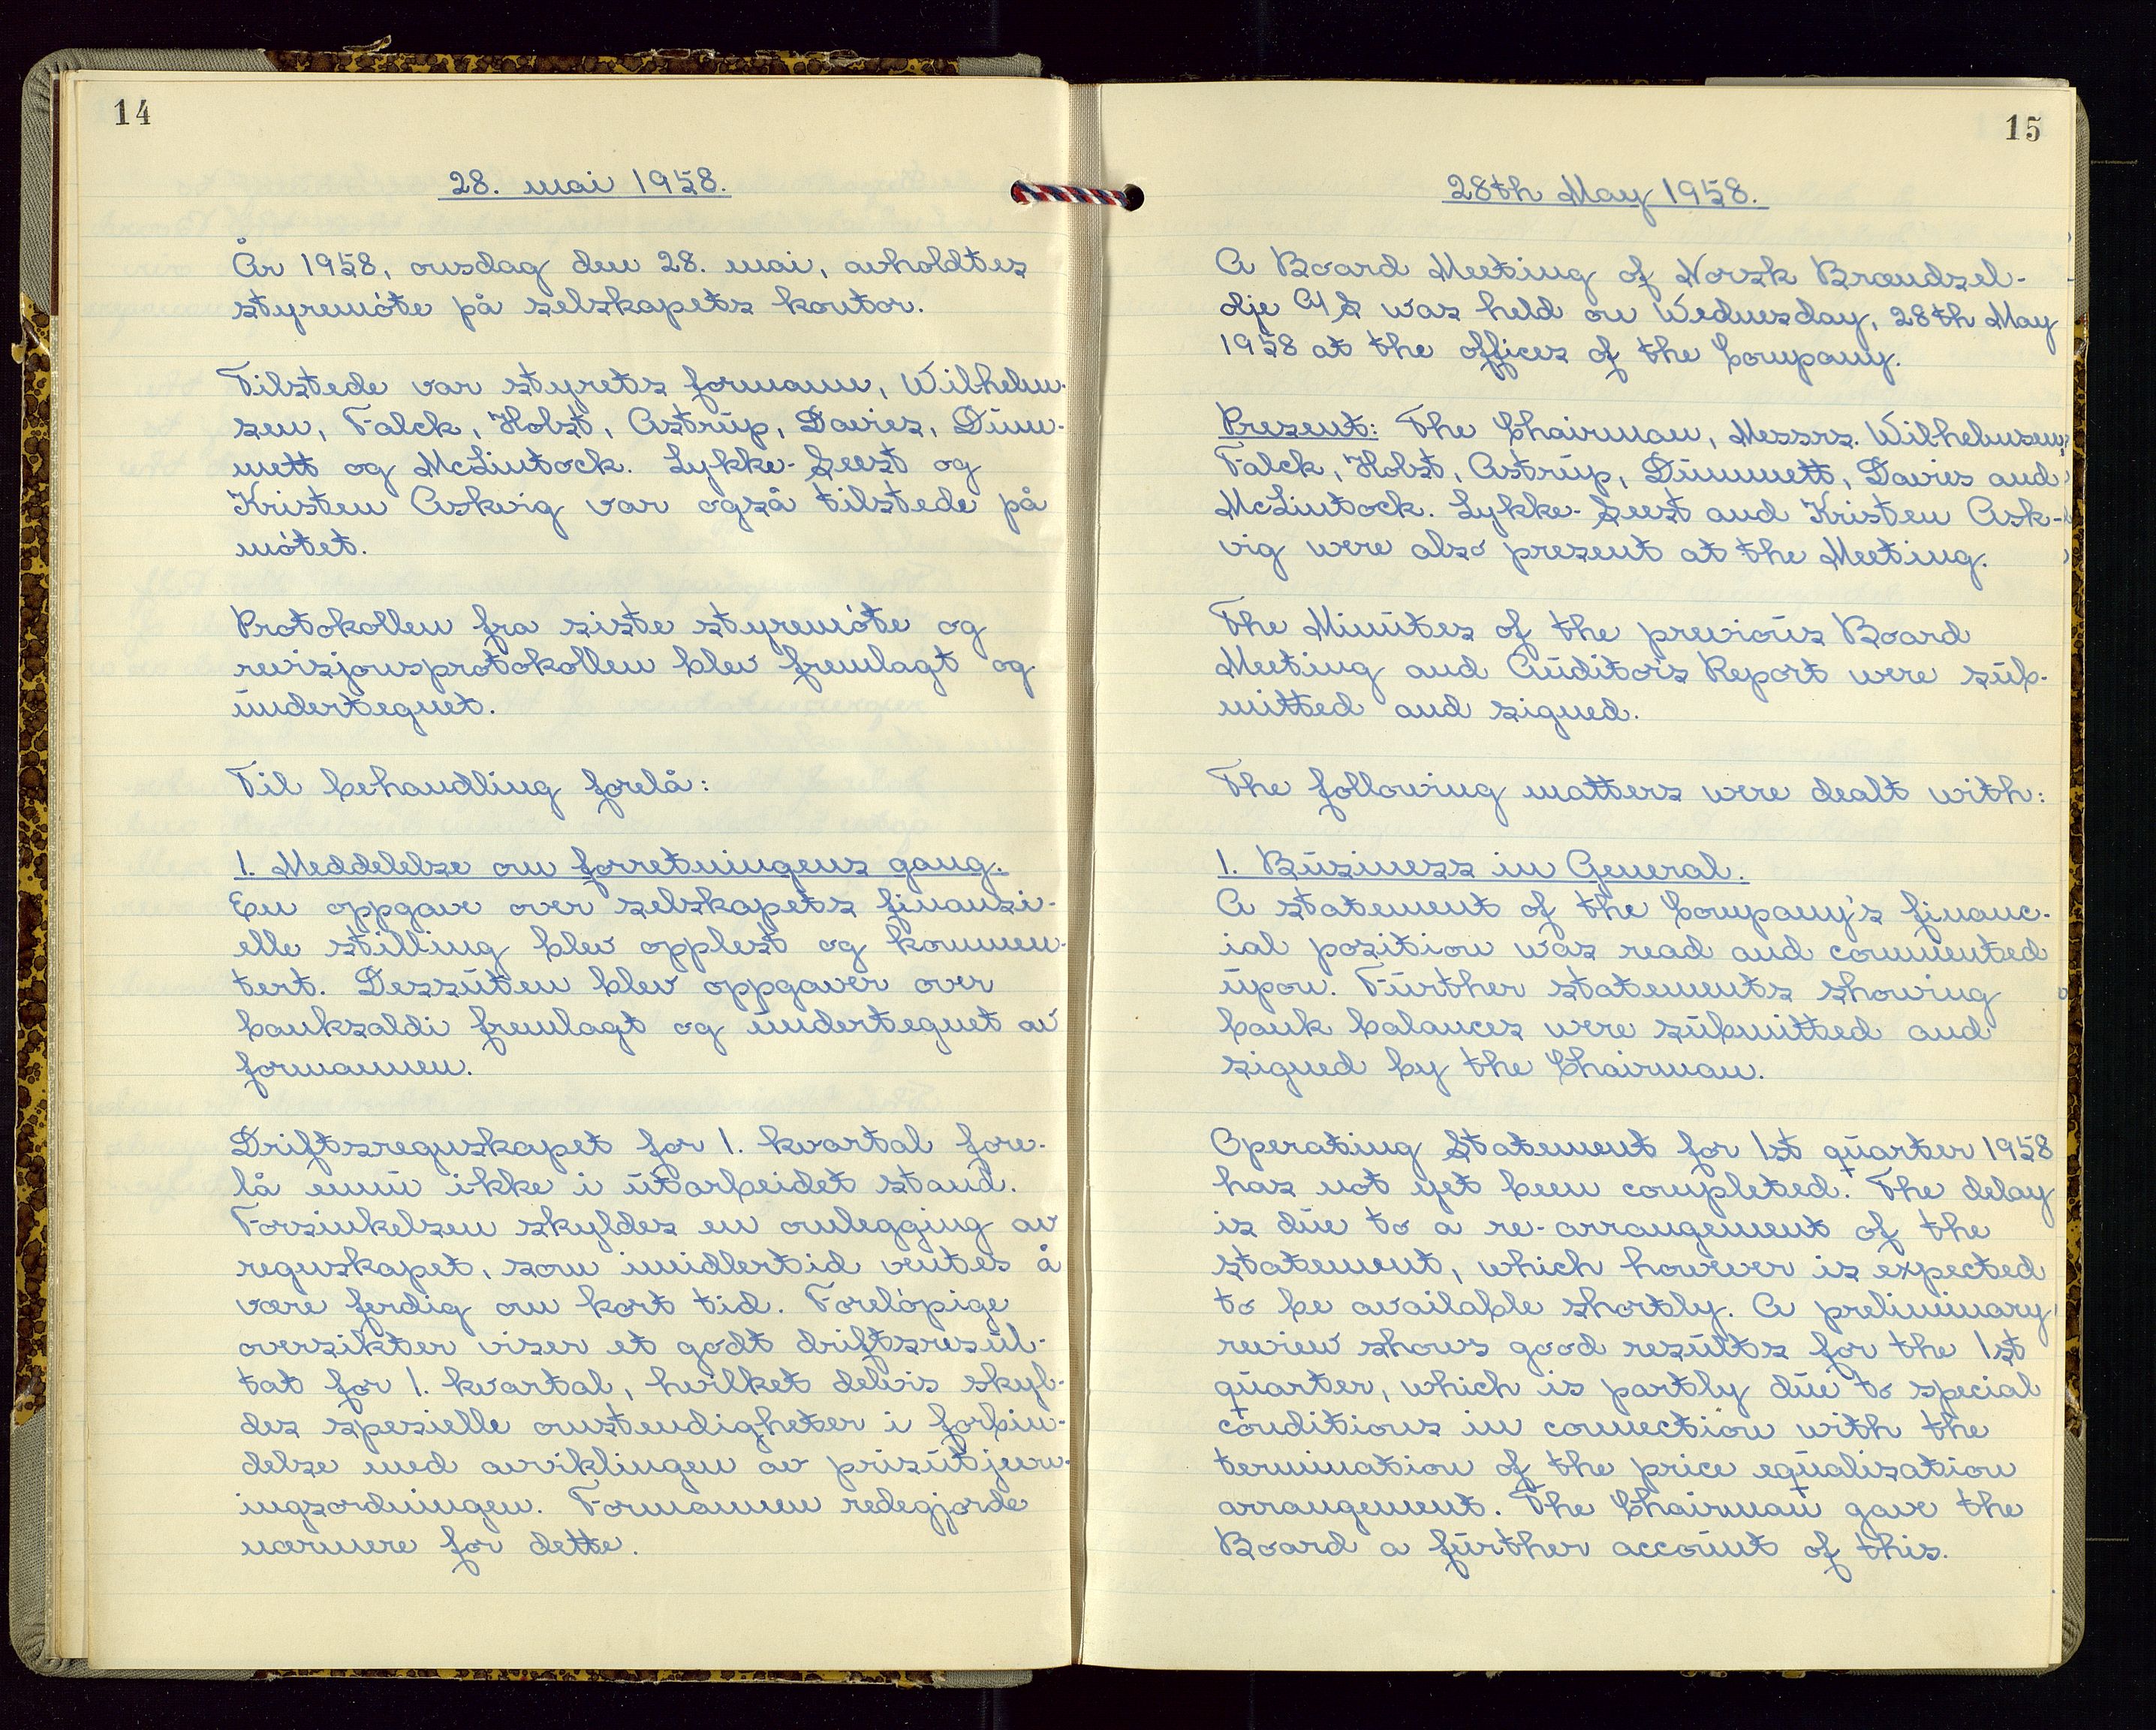 14
28. mai 1958.
År 1958, onsdag den 28. mai, avholdtes
styremöte på selskapets kontor.
Tilstede var styrets formann, Wilhelm-
sen, Falck, Holst, Astrup, Davies, Dum-
mett og McLintock. Lykke-Seest og
Kristen Askvig var også tilstede på
mötet.
Protokollen fra siste styremöte og
revisjonsprotokollen blev fremlagt og
undertegnet.
Til behandling forelå:
1. Meddelelse om forretningens gang.
En oppgave over selskapets finansi-
elle stilling blev opplest og kommen-
tert. Dessuten blev oppgaver over
banksaldi fremlagt og undertegnet av
formannen.
Driftsregnskapet for 1. kvartal fore-
lå ennu ikke i utarbeidet stand.
Forsinkelsen skyldes en omlegging av
regnskapet, som imidlertid ventes å
være ferdig om kort tid. Forelöpige
oversikter viser et godt driftsresul-
tat for 1. kvartal, hvilket delvis skyl-
des spesielle omstendigheter i forbin-
delse med avviklingen av prisutjevn-
ingsordningen. Formannen redegjorde
nærmere for dette.
15
28th May 1958.
A Board Meeting of Norsk Brændsel-
olje A/S was held on Wednesday, 28th May
1958 at the offices of the Company.
Present: The Chairman, Messrs. Wilhelmsen,
Falck, Holst, Astrup, Dummett, Davies and
McLintock. Lykke-Seest and Kristen Ask-
vig were also present at the Meeting.
The Minutes of the previous Board
Meeting and Auditor's Report were sub-
mitted and signed.
The following matters were dealt with:
1. Business in General.
A statement of the Company's financ-
ial position was read and commented
upon. Further statements showing
bank balances were submitted and
signed by the Chairman.
Operating Statement for 1st quarter 1958
has not yet been completed. The delay
is due to a re-arrangement of the
statement, which however is expected
to be available shortly. A preliminary
review shows good results for the 1st
quarter, which is partly due to special
conditions in connection with the
termination of the price equalisation
arrangement. The Chairman gave the
Board a further account of this.